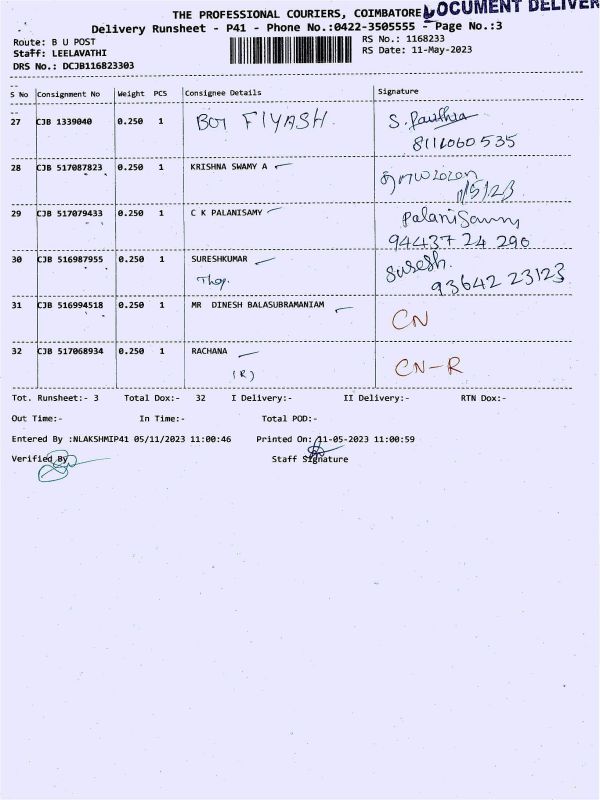 THE PROFESSIONAL COURIERS, COIMBATORE
DOCUMENT DELIVER
Delivery Runsheet - P41 - Phone No.:0422-3505555 - Page No.:3
Route: B U POST
RS No.: 1168233
Staff: LEELAVATHI
RS Date: 11-May-2023
DRS No.: DCJB116823303
S No Consignment No Weight PCS Consignee Details Signature
27 CJB 1339040 0.250 1 BOI FIYASH S.
8111060 535
28 CJB 517087823 0.250 1 KRISHNA SWAMY A
11/5/23
29 CJB 517079433 0.250 1 C K PALANISAMY Palanisamy
94437 24 290
30 CJB 516987955 0.250 1 SURESHKUMAR Suresh.
93642 23123
31 CJB 516994518 0.250 1 MR DINESH BALASUBRAMANIAM CN
32 CJB 517068934 0.250 1 RACHANA CN-R
(R)
Tot. Runsheet:- 3 Total Dox:- 32 I Delivery:- II Delivery:- RTN Dox:-
Out Time:- In Time:- Total POD:-
Entered By :NLAKSHMIP41 05/11/2023 11:00:46 Printed On: 11-05-2023 11:00:59
Verified By Staff Signature